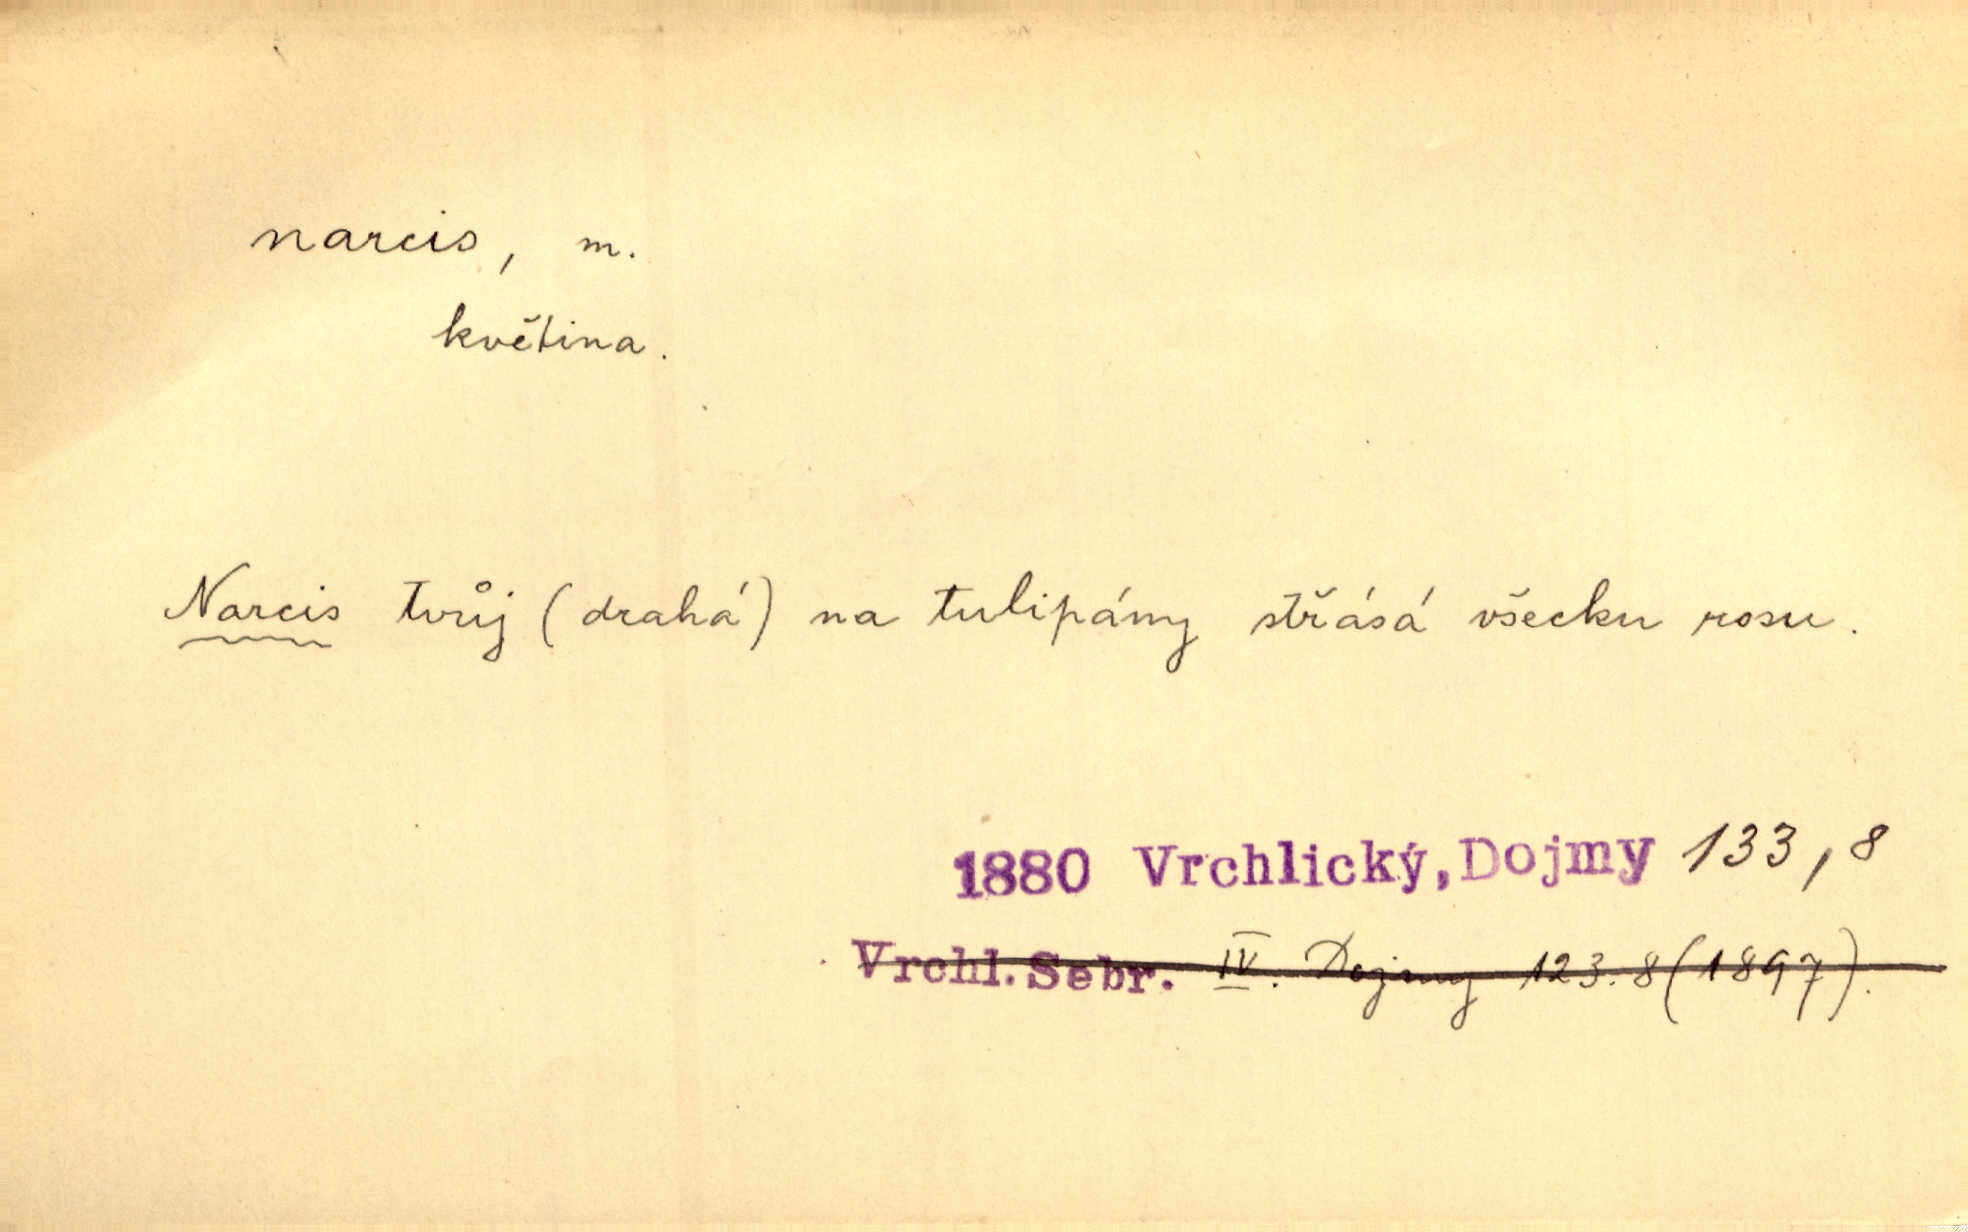 narcis, m.
květina.
Narcis tvůj (drahá) na tulipány střásá všecku rosu.
1880 Vrchlický, Dojmy 133, 8
Vrchl. Sebr. IV. Dojmy 123. 8 (1897).